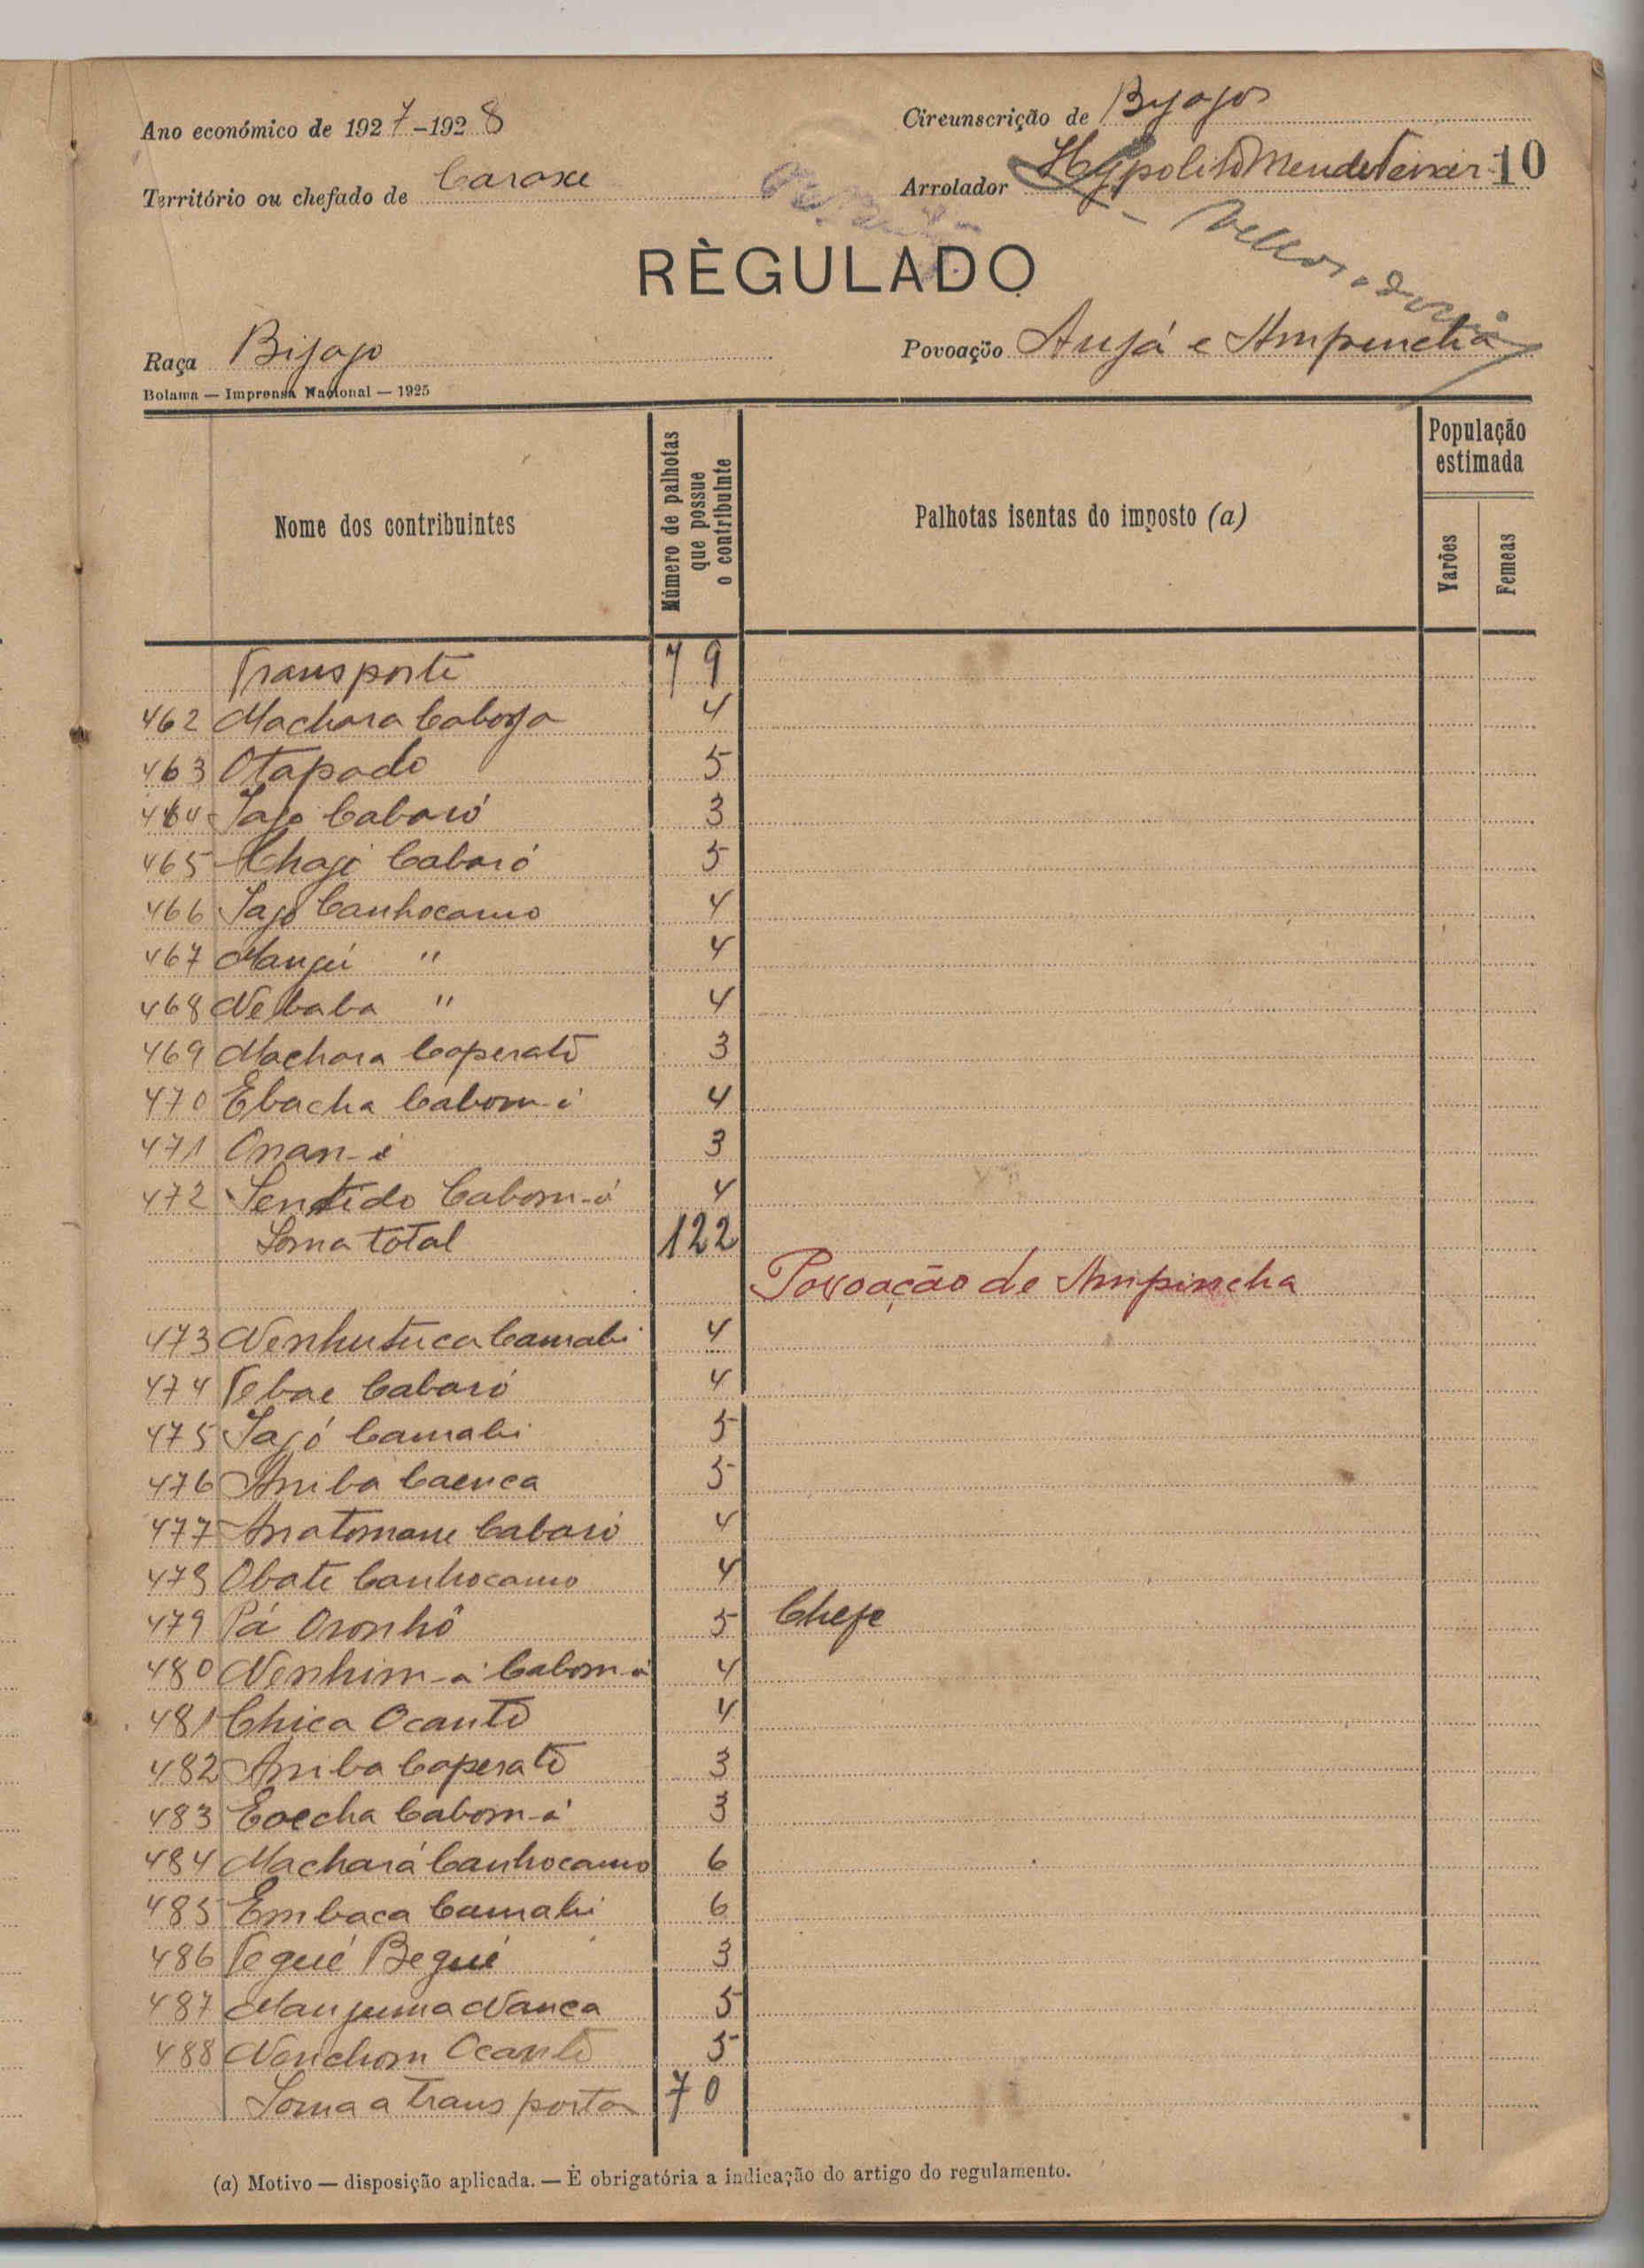 Ano económico de 1927-1928
Circunscrição de Byagos
Território ou chefado de Caraxe
Arrolador Hypolito Mendes Teixeira 10
RÈGULADO
Raça Bijago
Povoação Anjá e Ampincha
Bolama — Imprensa Nacional — 1925
Nome dos contribuintes
Número de palhotas que possue o contribuinte
Palhotas isentas do imposto (a)
População estimada
Varões
Femeas
Transporte 79
462 Machara 4
463 Otapado 5
464 Jago Cabaró 3
465 Chagi Cabaró 5
466 Jago Canhocamo 4
467 Manjui " 4
468 Nebaba " 4
469 Machara Coperatô 3
470 Ebacha Cabom-á 4
471 Onan-é 3
472 Sentido Cabom-á 4
Soma total 122
Povoação de Ampincha
473 Nenhutuca Camabi 4
474 Tebae Cabaró 4
475 Jagó Camabi 5
476 Aniba Caenca 5
477 Anatomane Cabaró 4
478 Obate Canhocamo 4
479 Pá Oronhô 5 Chefe
480 Nenhim-á Cabom-á 4
481 Chica Ocantô 4
482 Aniba Coperatô 3
483 Eoecha Cabom-á 3
484 Machará Canhocamo 6
485 Embaca Camabi 6
486 Tegué Begué 3
487 Manjuma Nanca 5
488 Nenchom Ocantô 5
Soma a transportar 70
(a) Motivo — disposição aplicada. — É obrigatória a indicação do artigo do regulamento.